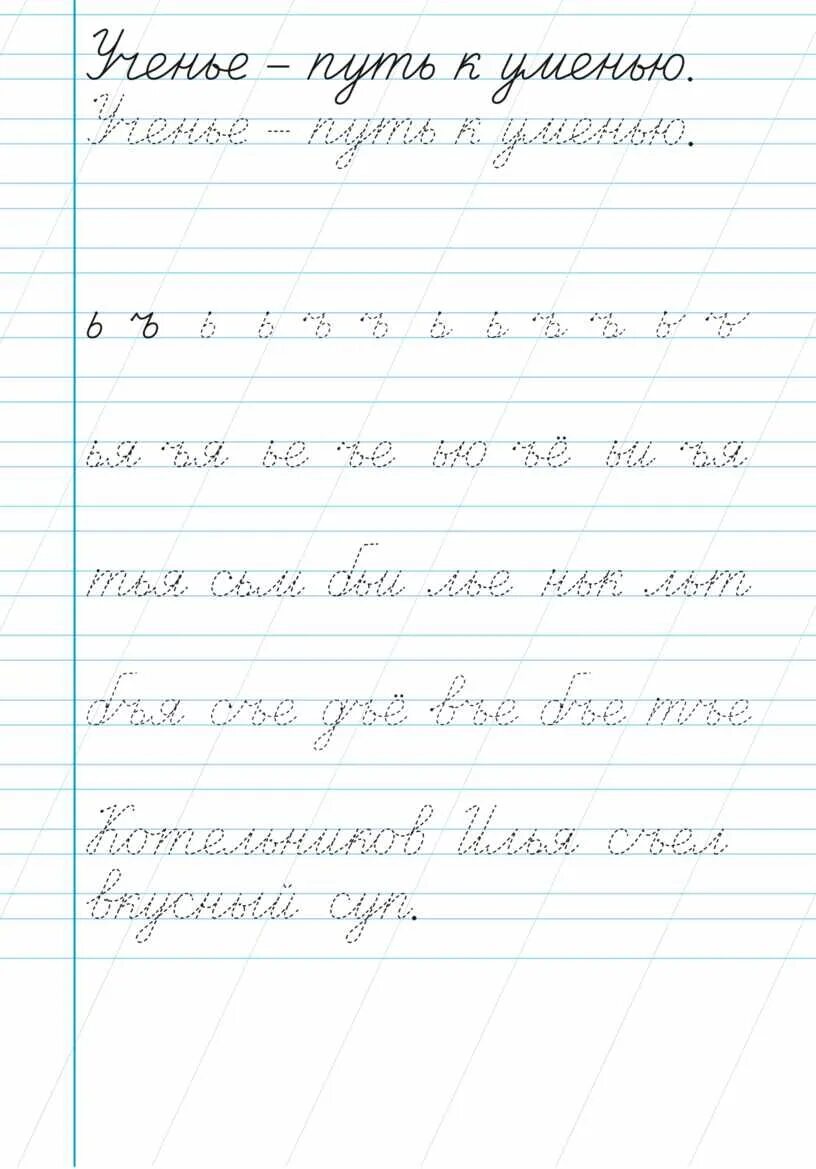 Ученье – путь к уменью.
Ученье – путь к уменью.
ь ъ ь ь ъ ъ ь ь ъ ъ ь ъ
ья ъя ье ъе ью ъё ьи ъя
тья сьм бьи лье ньк льт
бъя съе дъё въе бъе тъе
Котельников Илья съел
вкусный суп.